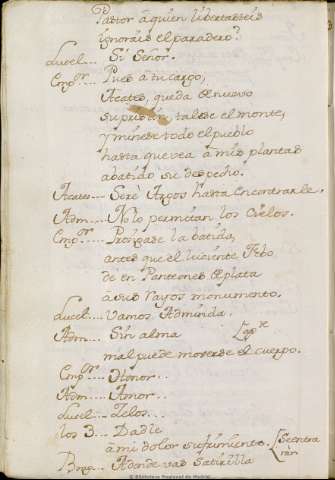 Pastor a quien libertasteis
ignorais el paradero?
Lucel... Si Señor.
Empor... Pues a tu cargo,
Acates, queda de nuevo
su prision, talese el monte,
y minese todo el pueblo
hasta que vea a mis plantas
abatido su despecho.
Acates... Seré Argos hasta encontrarle.
Adm... No lo permitan los Cielos.
Empor... Prosigase la batida,
antes que el luciente Febo
dé en Panteones de plata
a sus rayos monumento.
Lucel... Vamos Adminda.
Adm... Sin alma [apte
mal puede moverse el cuerpo.
Empor... Honor..
Adm... Amor..
Lucel... Zelos...
los 3... Dadle
a mi dolor sufrimiento. [Se entra
ran
Adonde vas Satirilla
Biblioteca Regional de Madrid